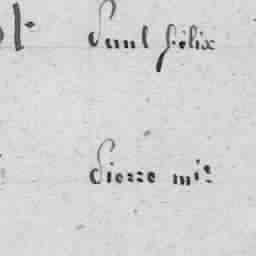 Paul felix
Pierre mis